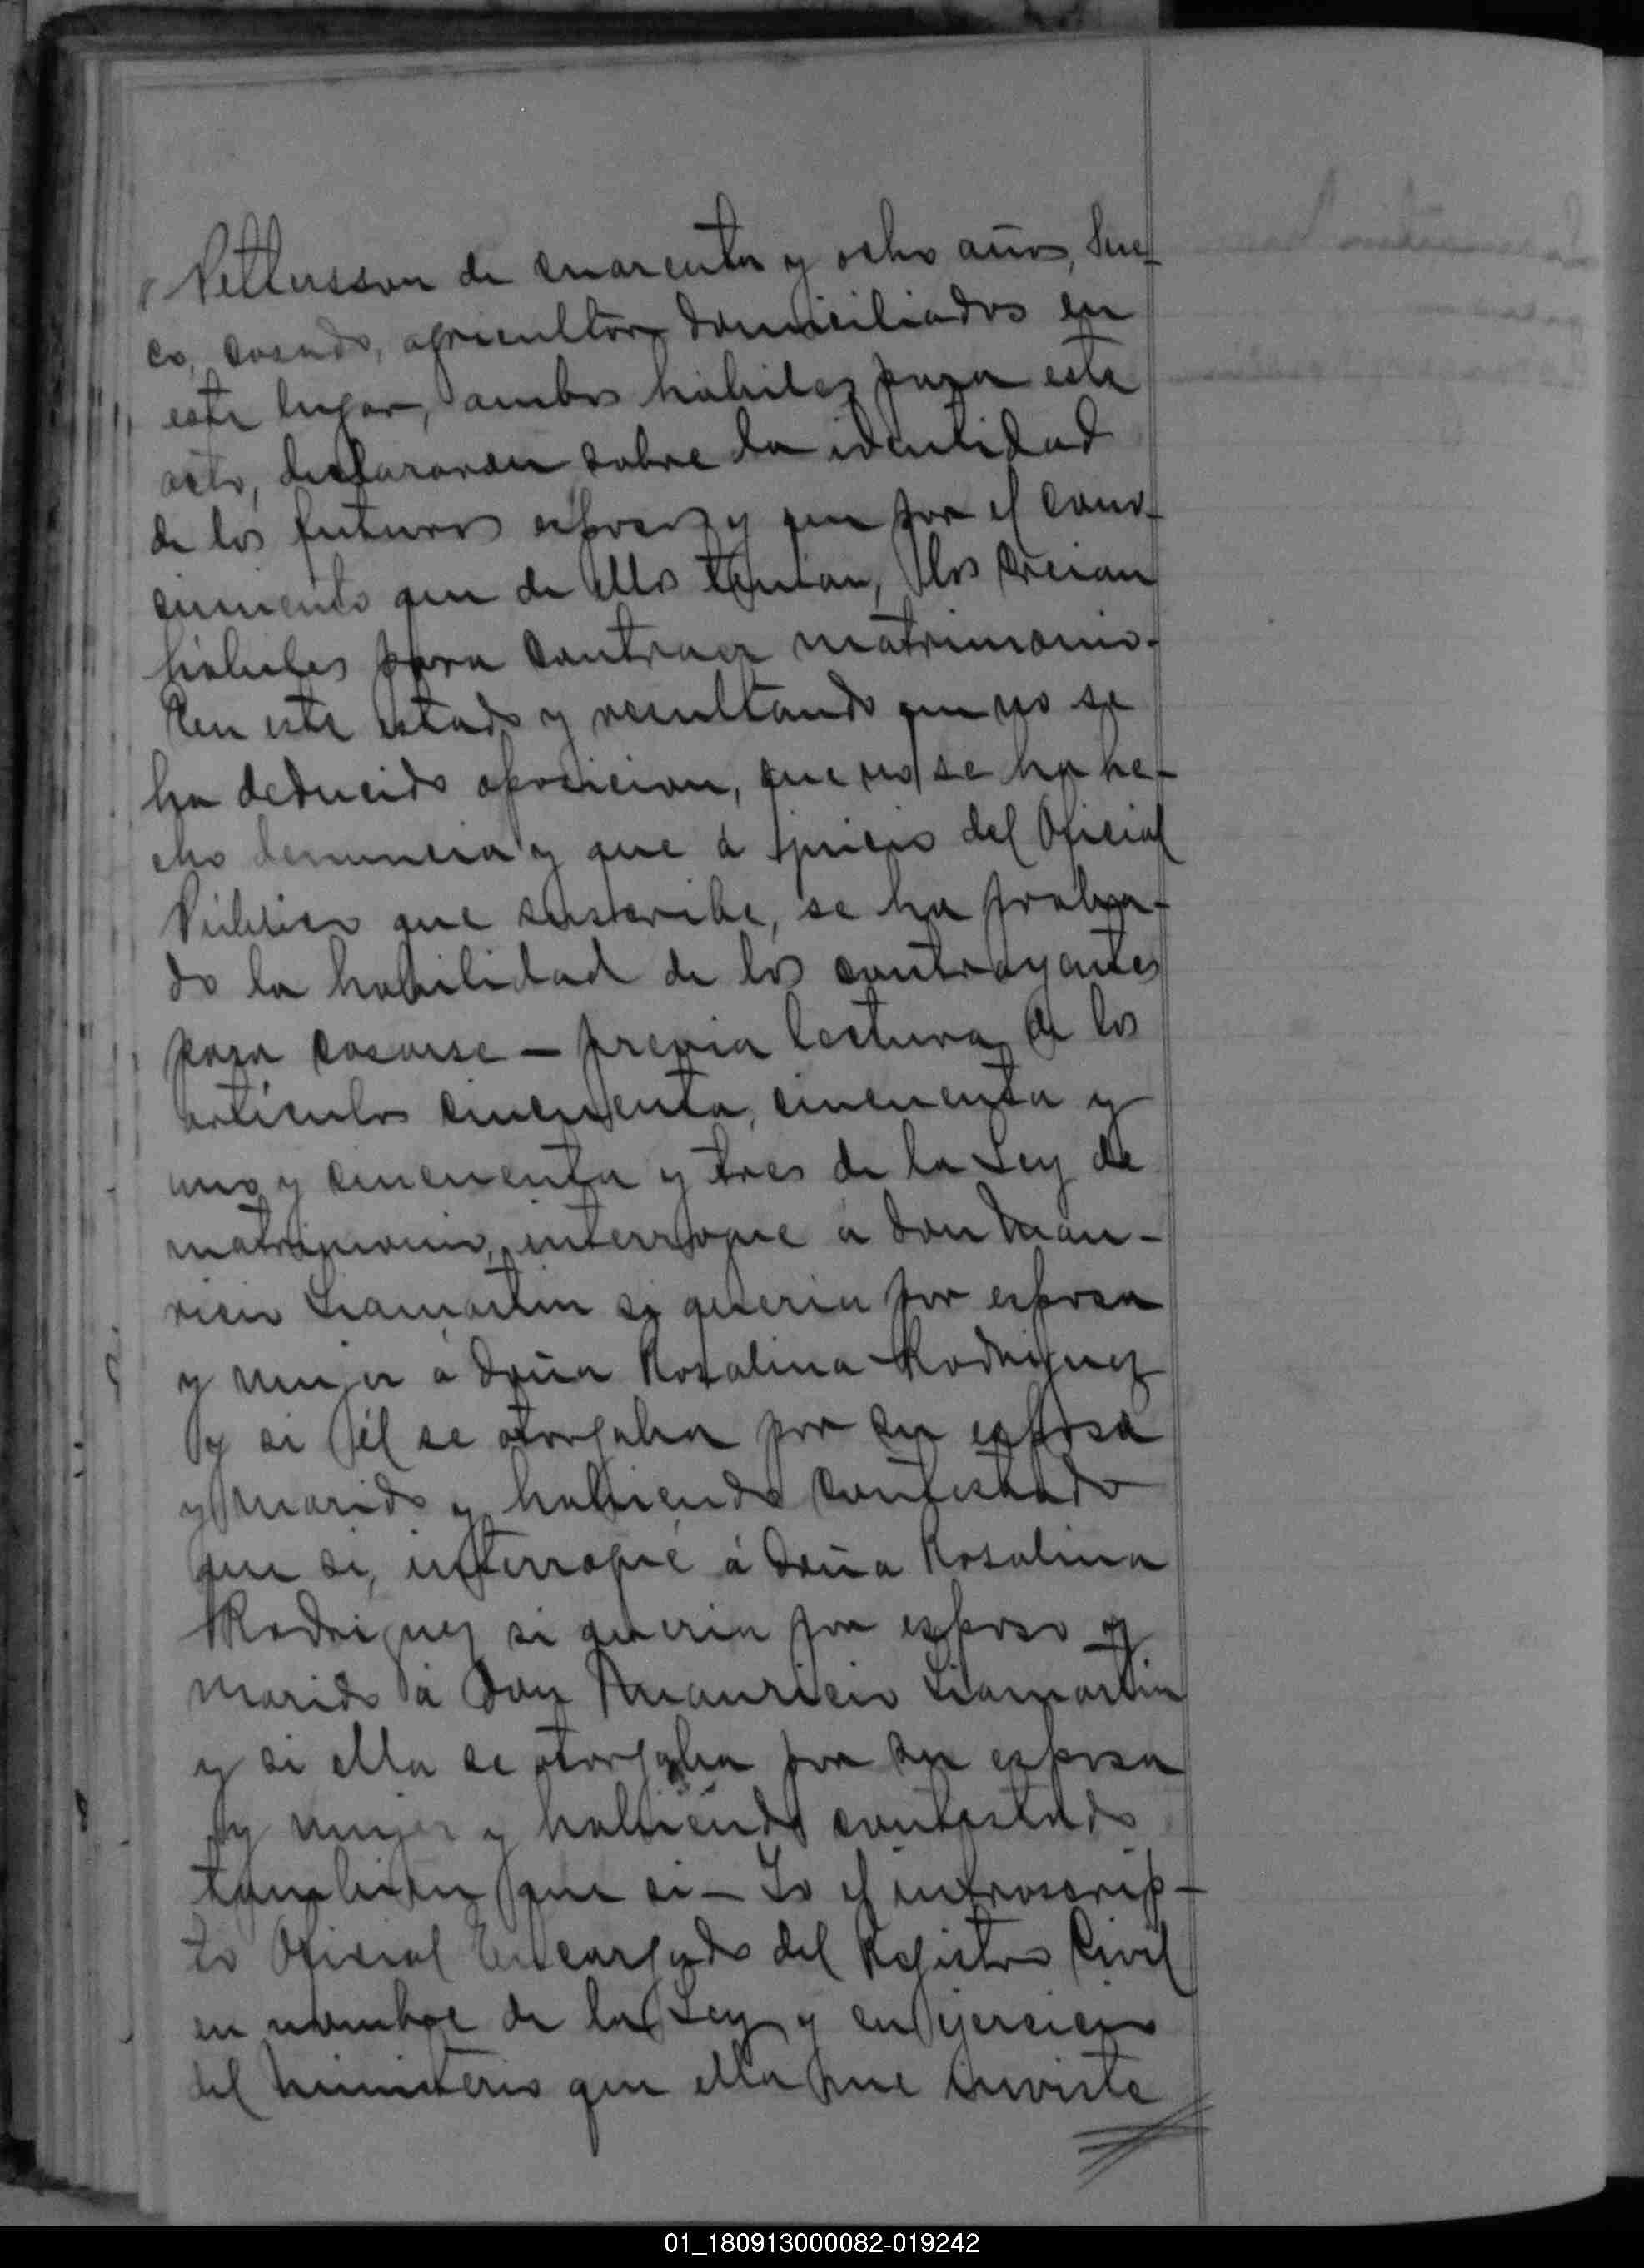 Pettersson de cuarenta y ocho años, Sue-
co, casado, agricultor domiciliados en
este lugar, ambos hábiles para este
acto, declararon sobre la identidad
de los futuros esposos y que por el cono-
cimiento que de ellos tenian, los creian
hábiles para contraer matrimonio.
En este estado y resultando que no se
ha deducido oposicion, que no se ha he-
cho denuncia y que á juicio del Oficial
Público que suscribe, se ha proba-
do la habilidad de los contrayentes
para casarse — previa lectura de los
artículos cincuenta, cincuenta y
uno y cincuenta y tres de la Ley de
matrimonio, interrogué á don Mau-
ricio Liamartin si queria por esposa
y mujer á doña Rosalina Rodriguez
y si él se otorgaba por su esposo
y marido y habiendo contestado
que si, interrogué á doña Rosalina
Rodriguez si queria por esposo y
marido á don Mauricio Liamartin
y si ella se otorgaba por su esposa
y mujer y habiendo contestado
tambien que si — Yo el infrascrip-
to Oficial Encargado del Registro Civil
en nombre de la Ley y en ejercicio
del ministerio que ella me inviste
01_180913000082-019242